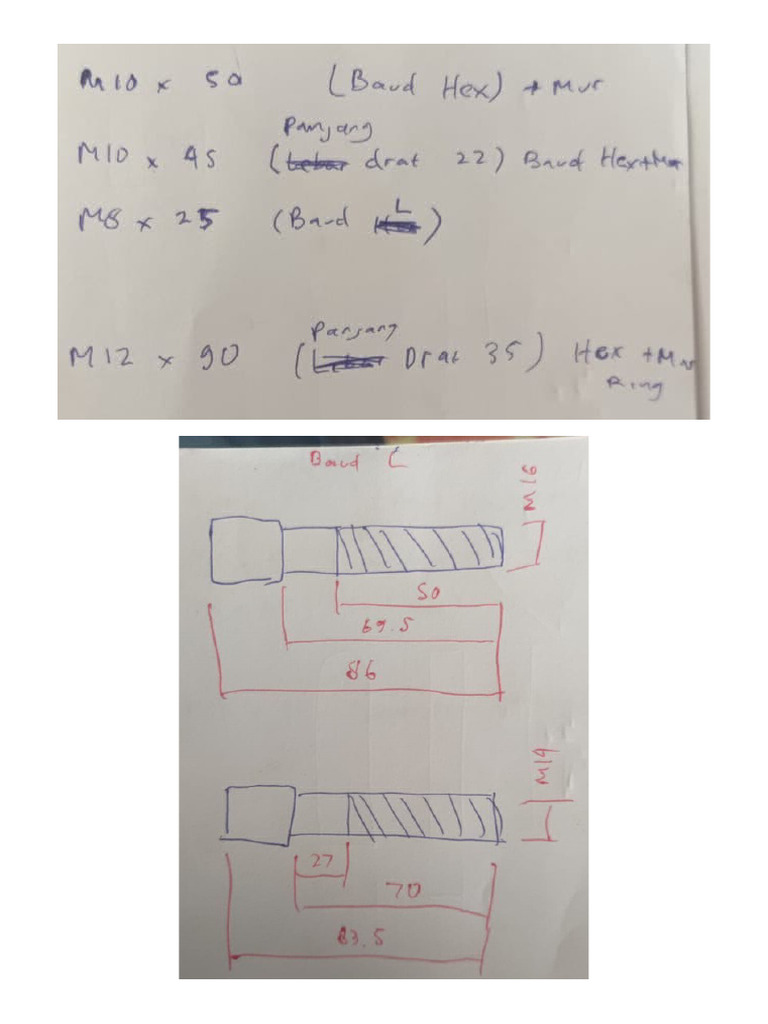 M10 x 50 (Baud Hex) + Mur
Panjang
M10 x 45 (drat 22) Baud Hex+Mur
M8 x 25 (Baud L)
Panjang
M12 x 90 (Drat 35) Hex + Mur
Ring
Baud L
M16
50
69.5
86
M14
27
70
83.5